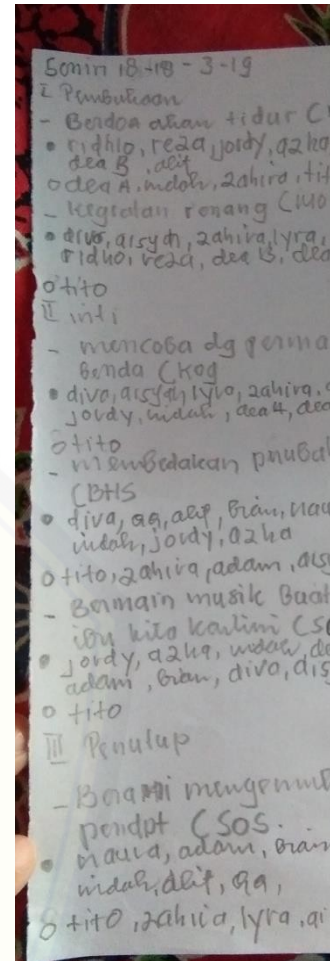 Senin 18-18-3-19
I Pembukaan
- Berdoa akan tidur C
• ridho, reza, jordy, azka
dea B, alif
o dea A, indah, zahira, tit
- kegiatan renang (mo
• diva, arsyah, zahira, lyra,
ridho, reza, dea B, dea
o tito
II inti
- mencoba dg perma
benda (kog
• diva, arsyah, lyra, zahira,
jordy, indah, dea A, dea
o tito
- membedakan
(BHS
• diva, qq, alif, brian, nau
indah, jordy, azka
o tito, zahira, adam, ars
- Bermain musik Buat
ibu kita kartini (so
• jordy, azka, indah, de
adam, brian, diva, dis
o tito
III Penutup
- Berani mengemu
pendpt (SOS.
• naura, adam, brian
indah, alif, qq,
o tito, zahira, lyra, ai